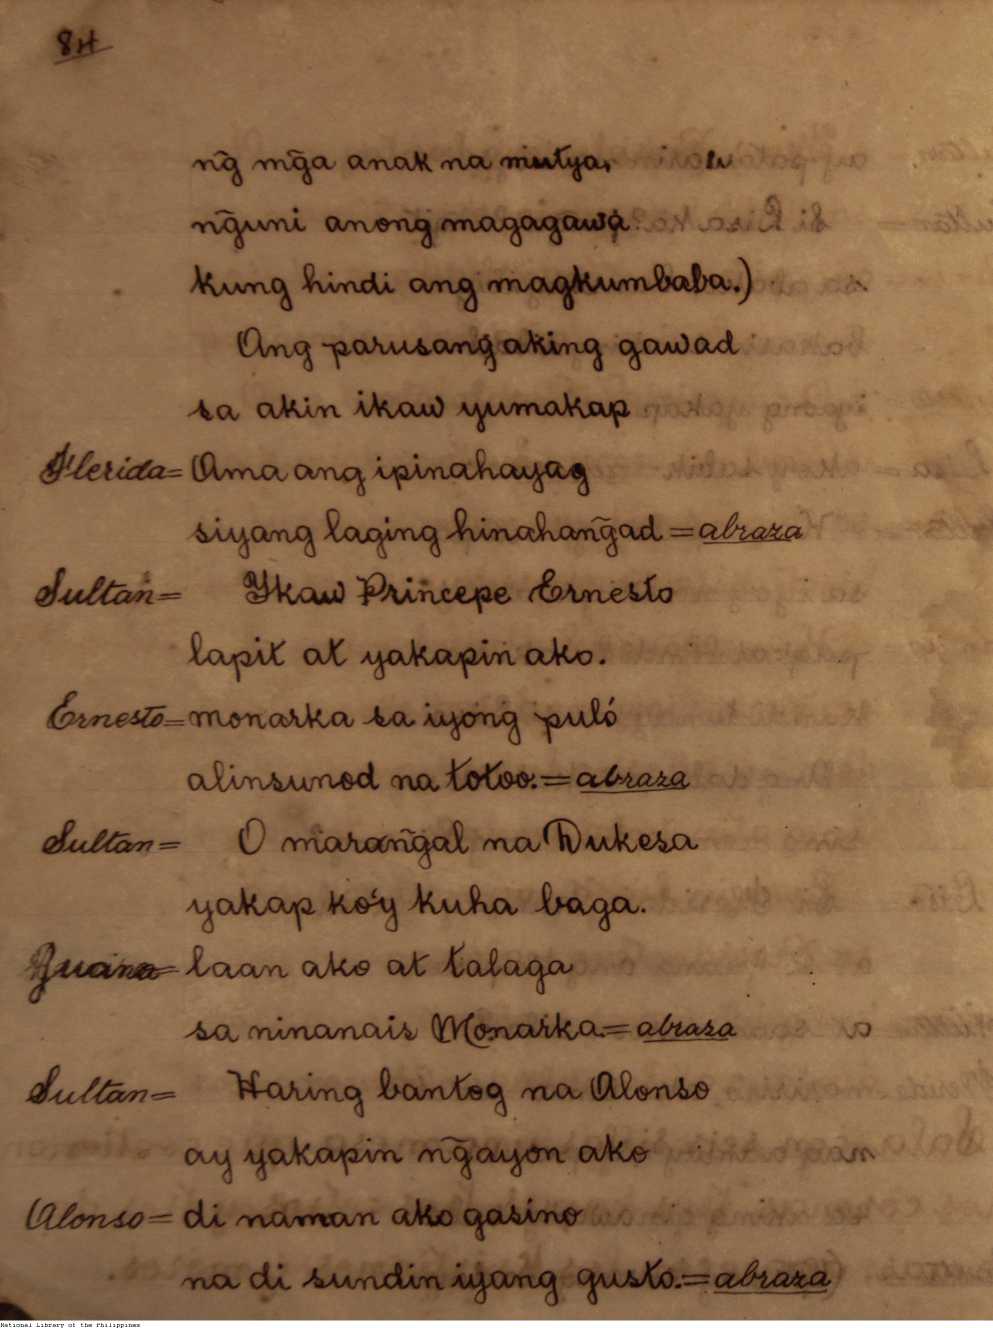 84
ng̃ mg̃a anak na mutya,
ng̃uni anong magagawa
kung hindi ang magkumbaba.)
Ang parusang aking gawad
sa akin ikaw yumakap
Flerida= Ama ang ipinahayag
siyang laging hinahang̃ad = abraza
Sultan= Ykaw Principe Ernesto
lapit at yakapin ako.
Ernesto= monarka sa iyong puló
alinsunod na totoo.= abraza
Sultan= O marang̃al na Dukesa
yakap ko'y kuha baga.
Juana= laan ako at talaga
sa ninanais Monarka.= abraza
Sultan= Haring bantog na Alonso
ay yakapin ng̃ayon ako
Alonso= di naman ako gasino
na di sundin iyang gusto.= abraza
National Library of the Philippines